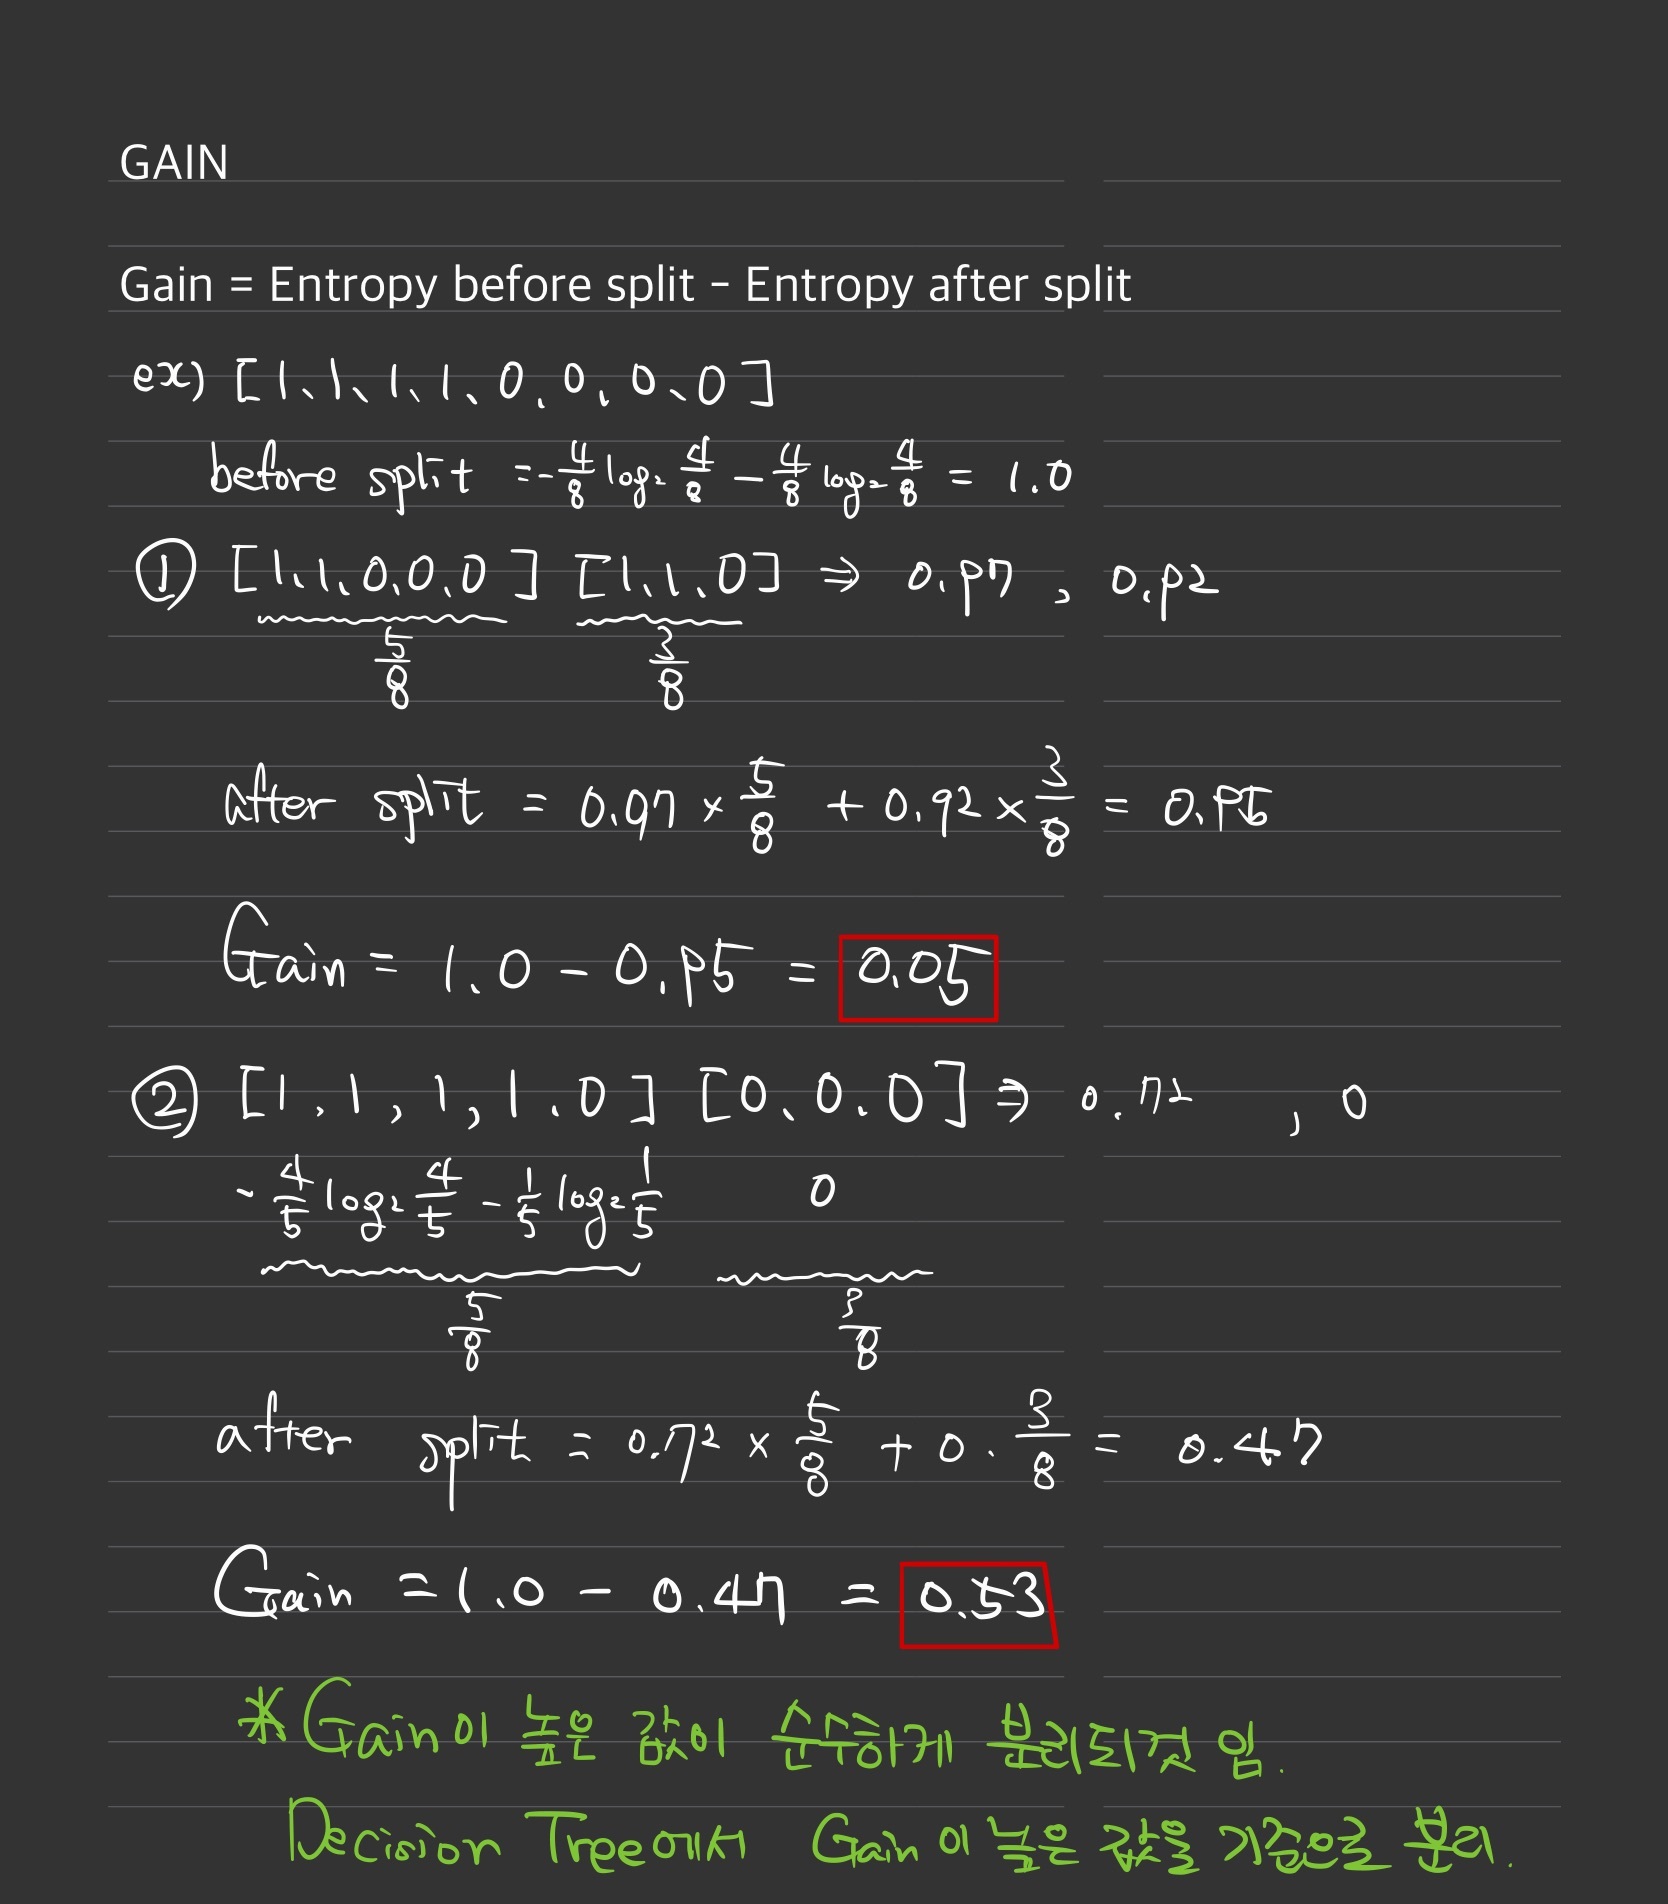 GAIN
Gain = Entropy before split - Entropy after split
ex) [1, 1, 1, 1, 0, 0, 0, 0]
before split = -4/8 log₂ 4/8 - 4/8 log₂ 4/8 = 1.0
① [1, 1, 0, 0, 0] [1, 1, 0] ⇒ 0.97 , 0.92
5/8 3/8
after split = 0.97 × 5/8 + 0.92 × 3/8 = 0.95
Gain = 1.0 - 0.95 = 0.05
② [1, 1, 1, 1, 0] [0, 0, 0] ⇒ 0.72 , 0
-4/5 log₂ 4/5 - 1/5 log₂ 1/5 0
5/8 3/8
after split = 0.72 × 5/8 + 0 · 3/8 = 0.47
Gain = 1.0 - 0.47 = 0.53
* Gain이 높은 값이 순수하게 분리되것 임.
Decision Tree에서 Gain이 높은 값을 기준으로 분리.